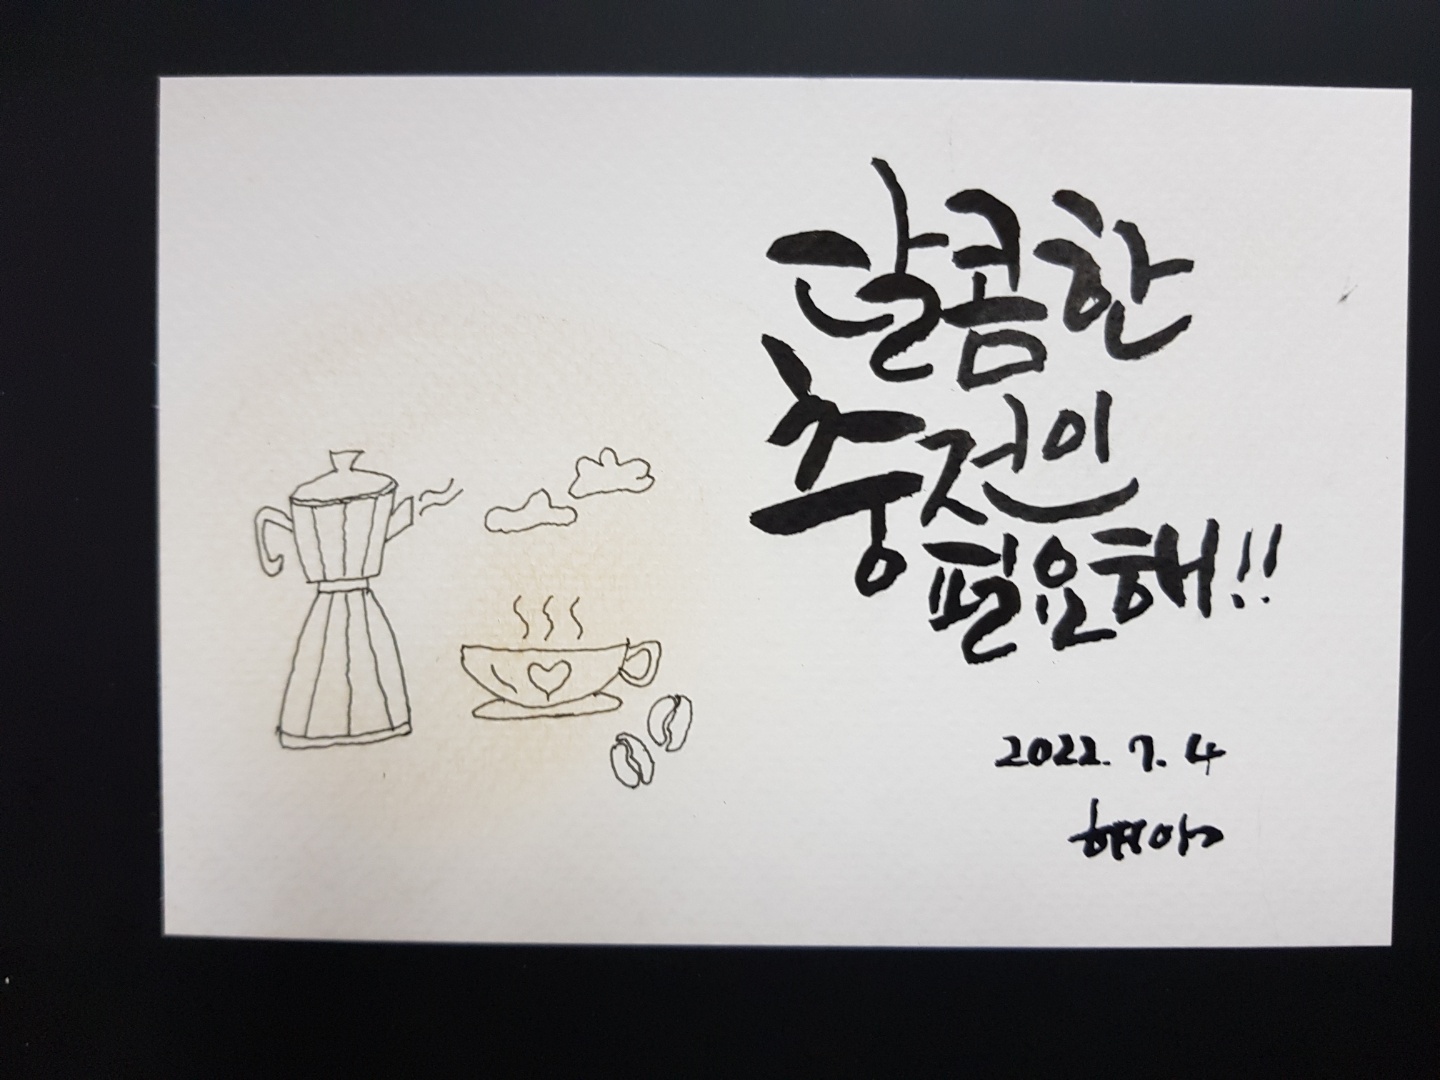 달콤한
충전이
필요해!!
2022. 7. 4